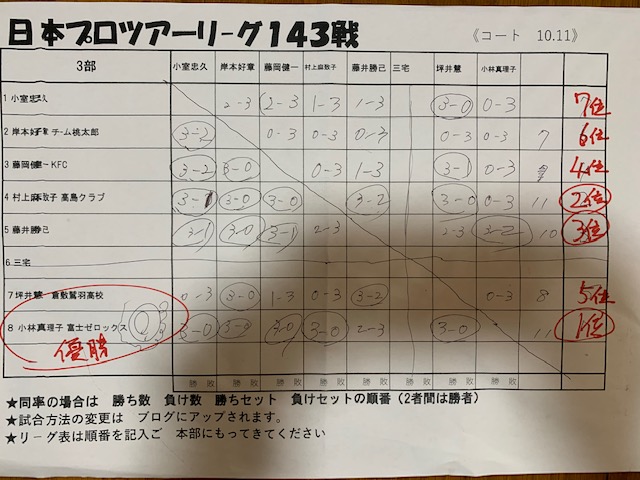 日本プロツアーリーグ143戦 《コート 10.11》
3部 小室忠久 岸本好章 藤岡健一 村上麻敦子 藤井勝己 三宅 坪井慧 小林真理子
1 小室忠久 2-3 2-3 1-3 1-3 3-0 0-3 7位
2 岸本好章 チーム桃太郎 3-2 0-3 0-3 0-3 0-3 0-3 7 6位
3 藤岡健一 KFC 3-2 3-0 0-3 1-3 3-1 0-3 4位
4 村上麻敦子 高島クラブ 3-1 3-0 3-0 3-2 3-0 0-3 11 2位
5 藤井勝己 3-1 3-0 3-1 2-3 2-3 3-2 10 3位
6 三宅
7 坪井慧 倉敷鷲羽高校 0-3 3-0 1-3 0-3 3-2 0-3 8 5位
8 小林真理子 富士ゼロックス 3-0 3-0 3-0 3-0 2-3 3-0 11 1位
優勝
勝 敗 勝 敗 勝 敗 勝 敗 勝 敗 勝 敗 勝 敗 勝 敗 勝 敗
★同率の場合は 勝ち数 負け数 勝ちセット 負けセットの順番(2者間は勝者)
★試合方法の変更は ブログにアップされます。
★リーグ表は順番を記入ご 本部にもってきてください